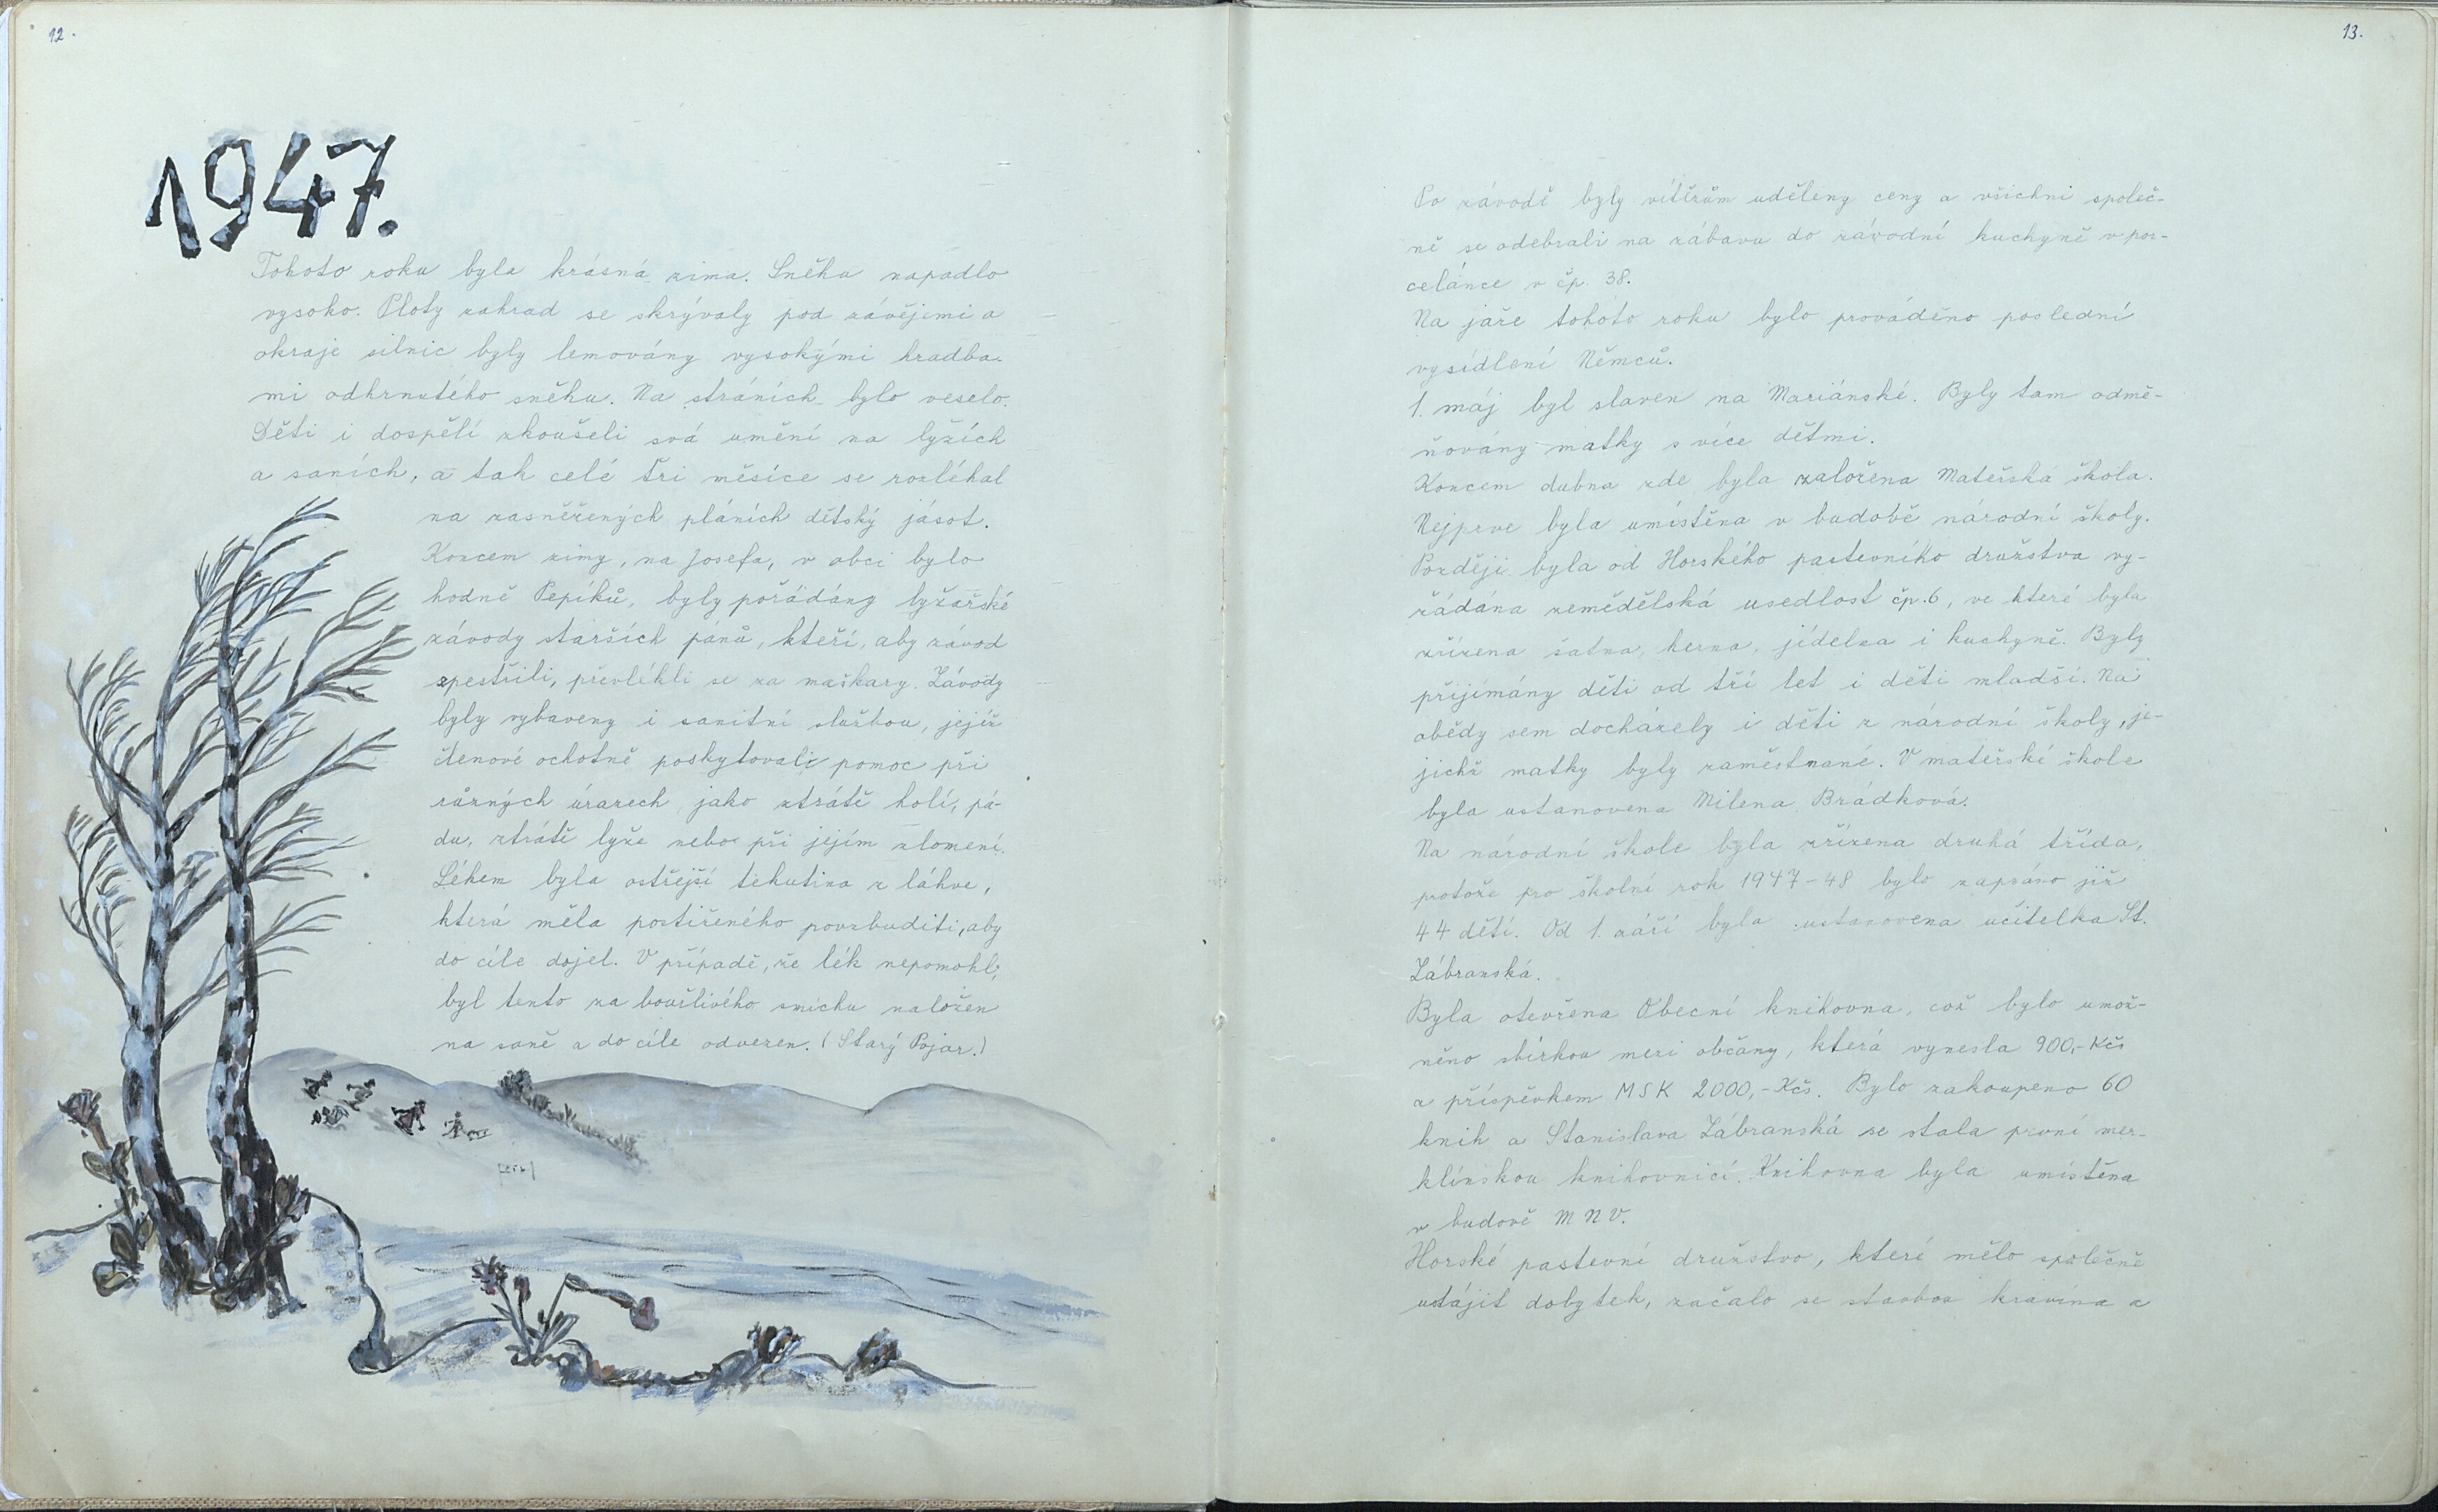 12.
1947.
Tohoto roku byla krásná zima. Sněhu napadlo
vysoko. Ploty zahrad se skrývaly pod závějemi a
okraje silnic byly lemovány vysokými hradba-
mi odhrnutého sněhu. Na stráních bylo veselo.
Děti i dospělí zkoušeli svá umění na lyžích
a saních, a tak celé tři měsíce se rozléhal
na zasněžených pláních dětský jásot.
Koncem zimy, na Josefa, v obci bylo
hodně Pepíků, byly pořádány lyžařské
závody starších pánů, kteří, aby závod
zpestřili, převlékli se za maškary. Závody
byly vybaveny i sanitní službou, jejíž
členové ochotně poskytovali pomoc při
různých úrazech, jako ztrátě holí, pá-
du, ztrátě lyže nebo při jejím zlomení.
Lékem byla ostřejší tekutina z láhve,
která měla postiženého povzbuditi, aby
do cíle dojel. V případě, že lék nepomohl,
byl tento za bouřlivého smíchu naložen
na saně a do cíle odvezen. (Starý Pojar.)
13.
Po závodě byly vítězům uděleny ceny a všichni společ-
ně se odebrali na zábavu do závodní kuchyně v por-
celánce v čp. 38.
Na jaře tohoto roku bylo prováděno poslední
vysídlení Němců.
1. máj byl slaven na Mariánské. Byly tam odmě-
ňovány matky s více dětmi.
Koncem dubna zde byla založena Mateřská škola.
Nejprve byla umístěna v budobě národní školy.
Později byla od Horského pastevního družstva vy-
žádána zemědělská usedlost čp. 6, ve které byla
zřízena šatna, herna, jídelna i kuchyně. Byly
přijímány děti od tří let i děti mladší. Na
obědy sem docházely i děti z národní školy, je-
jichž matky byly zaměstnané. V mateřské škole
byla ustanovena Milena Brádková.
Na národní škole byla zřízena druhá třída,
protože pro školní rok 1947-48 bylo zapsáno již
44 dětí. Od 1. září byla ustanovena učitelka St.
Zábranská.
Byla otevřena Obecní knihovna, což bylo umož-
něno sbírkou mezi občany, která vynesla 900,- Kčs
a příspěvkem MSK 2000,- Kčs. Bylo zakoupeno 60
knih a Stanislava Zábranská se stala první mer-
klínskou knihovnicí. Knihovna byla umístěna
v budově MNV.
Horské pastevní družstvo, které mělo společně
ustájit dobytek, začalo se stavbou kravína a